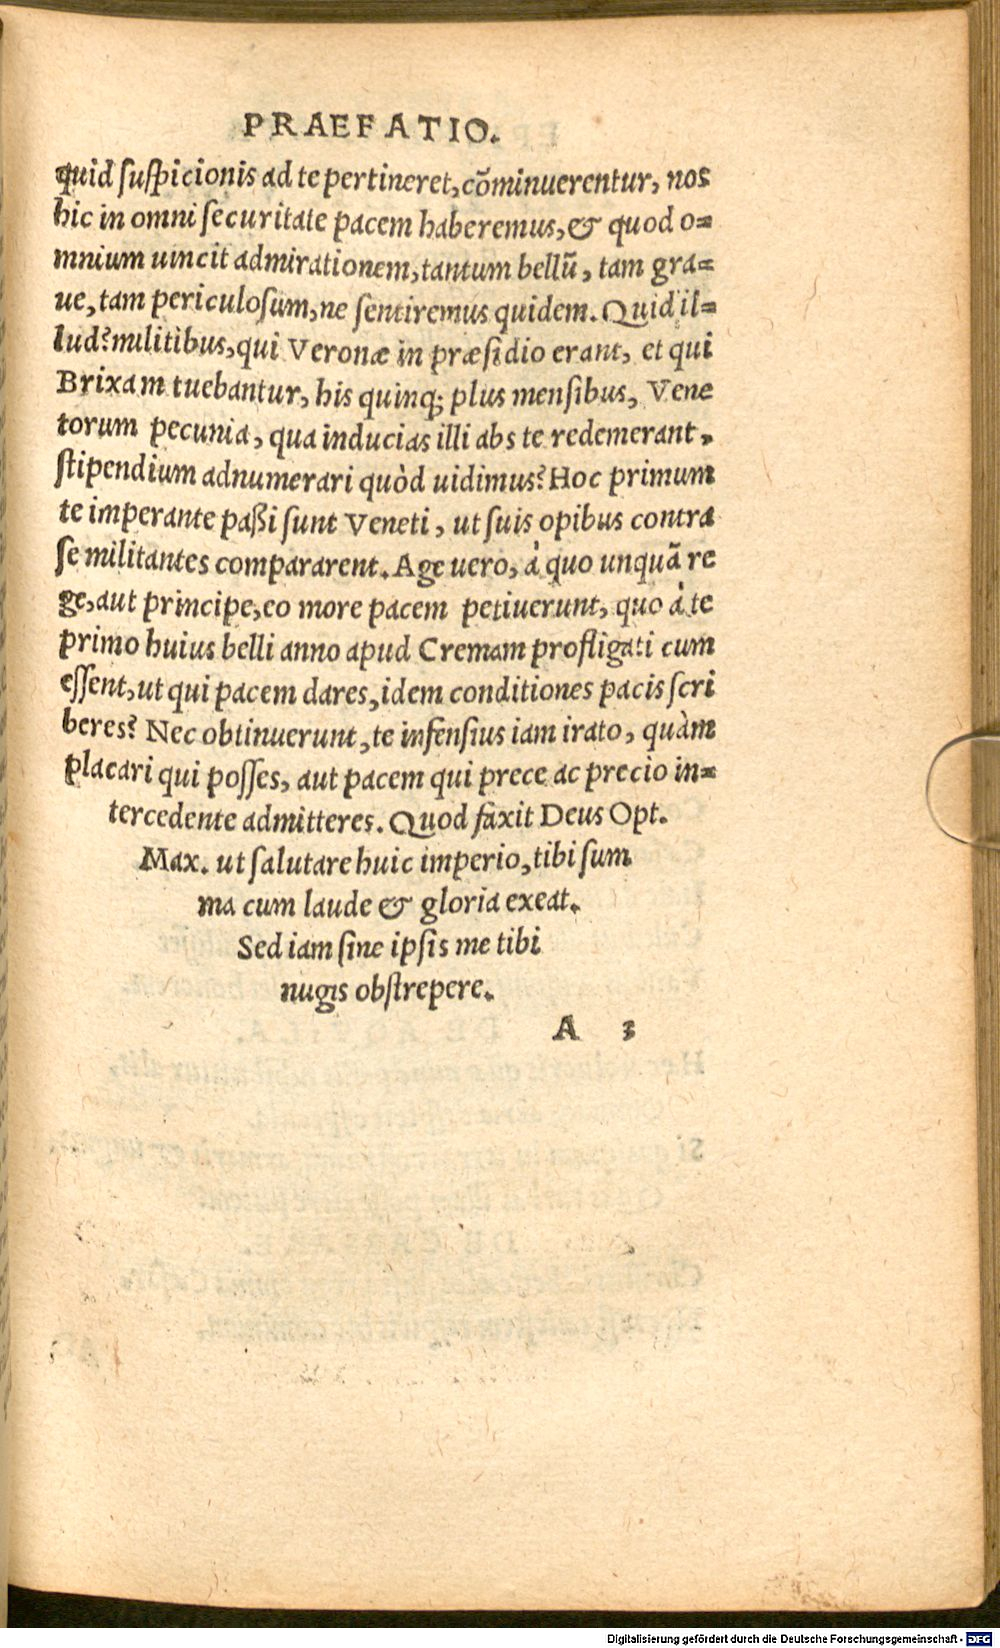 PRAEFATIO.
quid suſpicionis ad te pertineret, cõminuerentur, nos
hic in omni ſecuritate pacem haberemus, & quod o=
mnium uincit admirationem, tantum bellũ, tam gra=
ue, tam periculoſum, ne ſentiremus quidem. Quid il=
lud? militibus, qui Veronæ in præſidio erant, et qui
Brixam tuebantur, his quinq; plus menſibus, Vene
torum pecunia, qua inducias illi abs te redemerant,
ſtipendium adnumerari quòd uidimus? Hoc primum
te imperante paßi ſunt Veneti, ut ſuis opibus contra
ſe militantes compararent. Age uero, à quo unquã re
ge, aut principe, eo more pacem petiuerunt, quo à te
primo huius belli anno apud Cremam profligati cum
eſſent, ut qui pacem dares, idem conditiones pacis ſcri
beres? Nec obtinuerunt, te infenſius iam irato, quàm
placari qui poſſes, aut pacem qui prece ac precio in=
tercedente admitteres. Quod faxit Deus Opt.
Max. ut ſalutare huic imperio, tibi ſum
ma cum laude & gloria exeat.
Sed iam ſine ipſis me tibi
nugis obſtrepere.
A 3
Digitalisierung gefördert durch die Deutsche Forschungsgemeinschaft - DFG